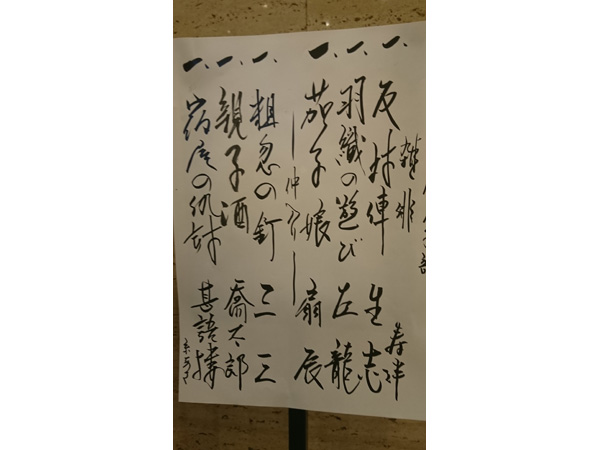 雑俳 寿伴
一、反対俥 生志
一、羽織の遊び 左龍
一、茄子娘 扇辰
―仲入り―
一、粗忽の釘 三三
一、親子酒 喬太郎
一、宿屋の仇討 甚語楼